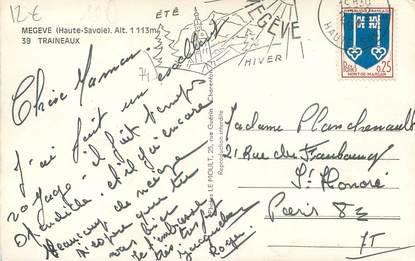 12€
MEGEVE (Haute-Savoie). Alt. 1 113m
39 TRAINEAUX
ÉTÉ
MEGÈVE
HIVER
REPUBLIQUE FRANÇAISE
POSTES
0,25
MONT-DE-MARSAN
74
Chère Maman.
J'ai fait un excellent
voyage - il fait temps
splendide. et il y a encore
Beaucoup de neige
J'espère que tu
vas bien
Je t'embrasse
très très fort
Jacqueline
Roger.
LE MOULT, 25, rue Guérin
Reproduction interdite
Madame Planchenault
21 Rue du Faubourg
St. Honoré
Paris 8e